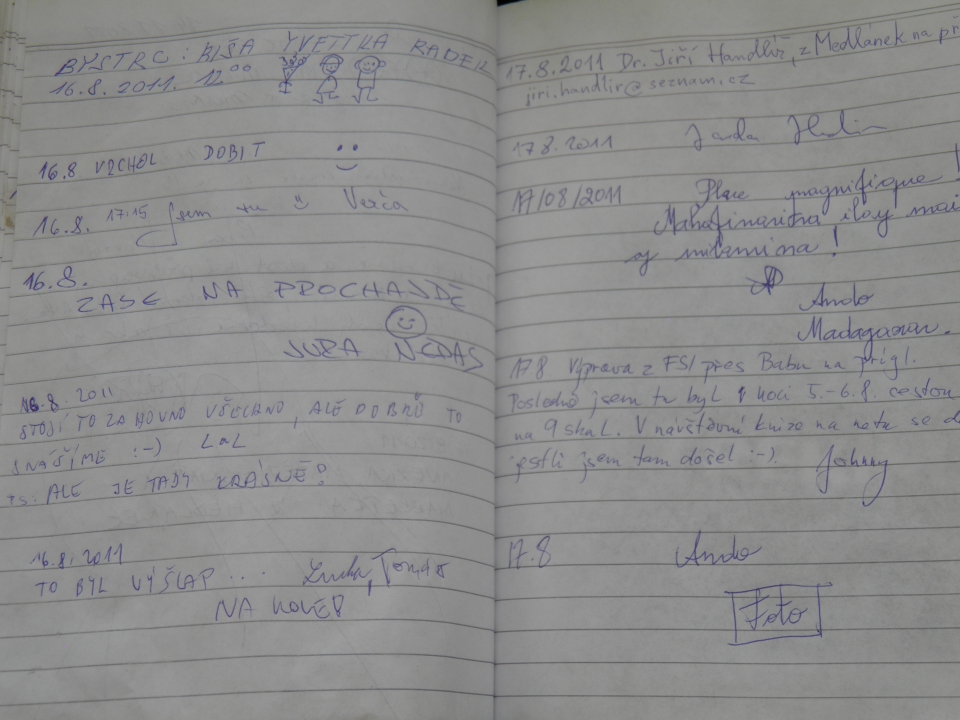 BYSTRC: RIŠA YVETTKA RADEK
16.8.2011. 12⁰⁰
16.8 VRCHOL DOBIT
16.8. 17:15 Jsem tu Verča
16.8.
ZASE NA PROCHAJDĚ
JURA NEDAS
16.8.2011
STOJÍ TO ZA HOVNO VŠECHNO, ALE DOBŘE TO
SNÁŠÍME :-) LaL
PS: ALE JE TADY KRÁSNĚ!
16.8.2011
TO BYL VÝŠLAP .... Lucka, Tomáš
NA KOLE!
17.8.2011 Dr. Jiří Handlíř, z Medlánek na př
jiri.handlir@seznam.cz
17.8.2011
17/08/2011 Place magnifique!
Mahafinaritra ilay
sy !
Ando
Madagascar.
17.8 Výprava z FSI přes Babu na prigl.
Posledně jsem tu byl v noci 5.-6.8. cestou
na 9 skal. V návštěvní knize na netu se d
jestli jsem tam došel :-). Johnny
17.8 Ando
Foto